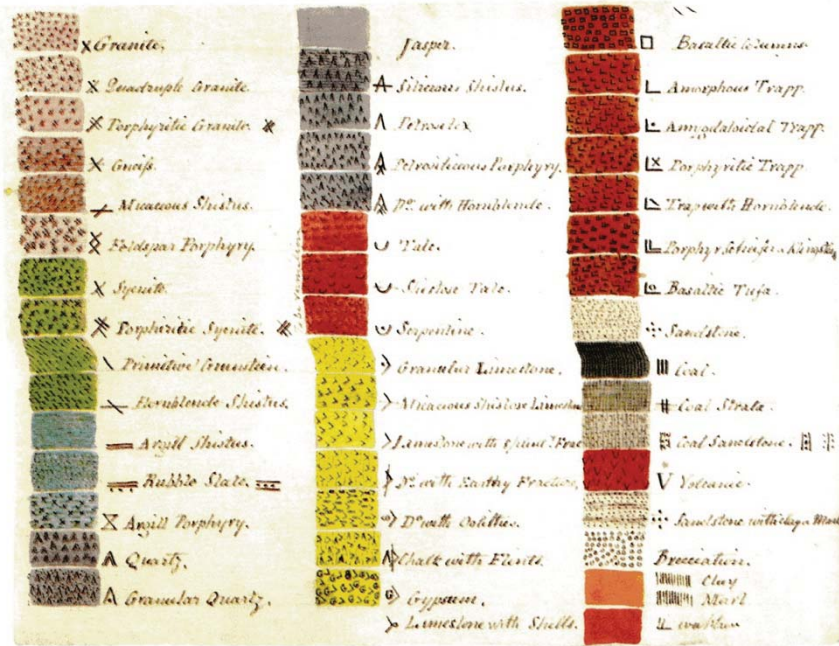 Granite.
Quadruple Granite.
Porphyritic Granite.
Gneiſs.
Micaceous Shistus.
Feldspar Porphyry.
Syenite.
Porphiritic Syenite.
Primitive
Hornblende Shistus.
Argill Shistus.
Rubble Slate.
Argill Porphyry.
Quartz.
Granular Quartz.
Jasper.
Silicious Shistus.
Petrosilex
Petrosilicious Porphyry.
Dº. with Hornblende.
Talc.
Shistose Talc.
Serpentine.
Granular Limestone.
Micaceous Shistose
Limestone with
with Earthy Fracture
Dº with Oolithes.
Chalk with Flints.
Gypsum.
Limestone with Shells.
Basaltic Columns.
Amorphous Trapp.
Amygdaloidal Trapp.
Porphyritic Trapp.
Trap with Hornblende.
Basaltic Tufa.
Sandstone.
Coal.
Coal Strata.
Coal Sandstone.
V Volcanic.
Sandstone with clay
Brecciation.
Clay
Marl